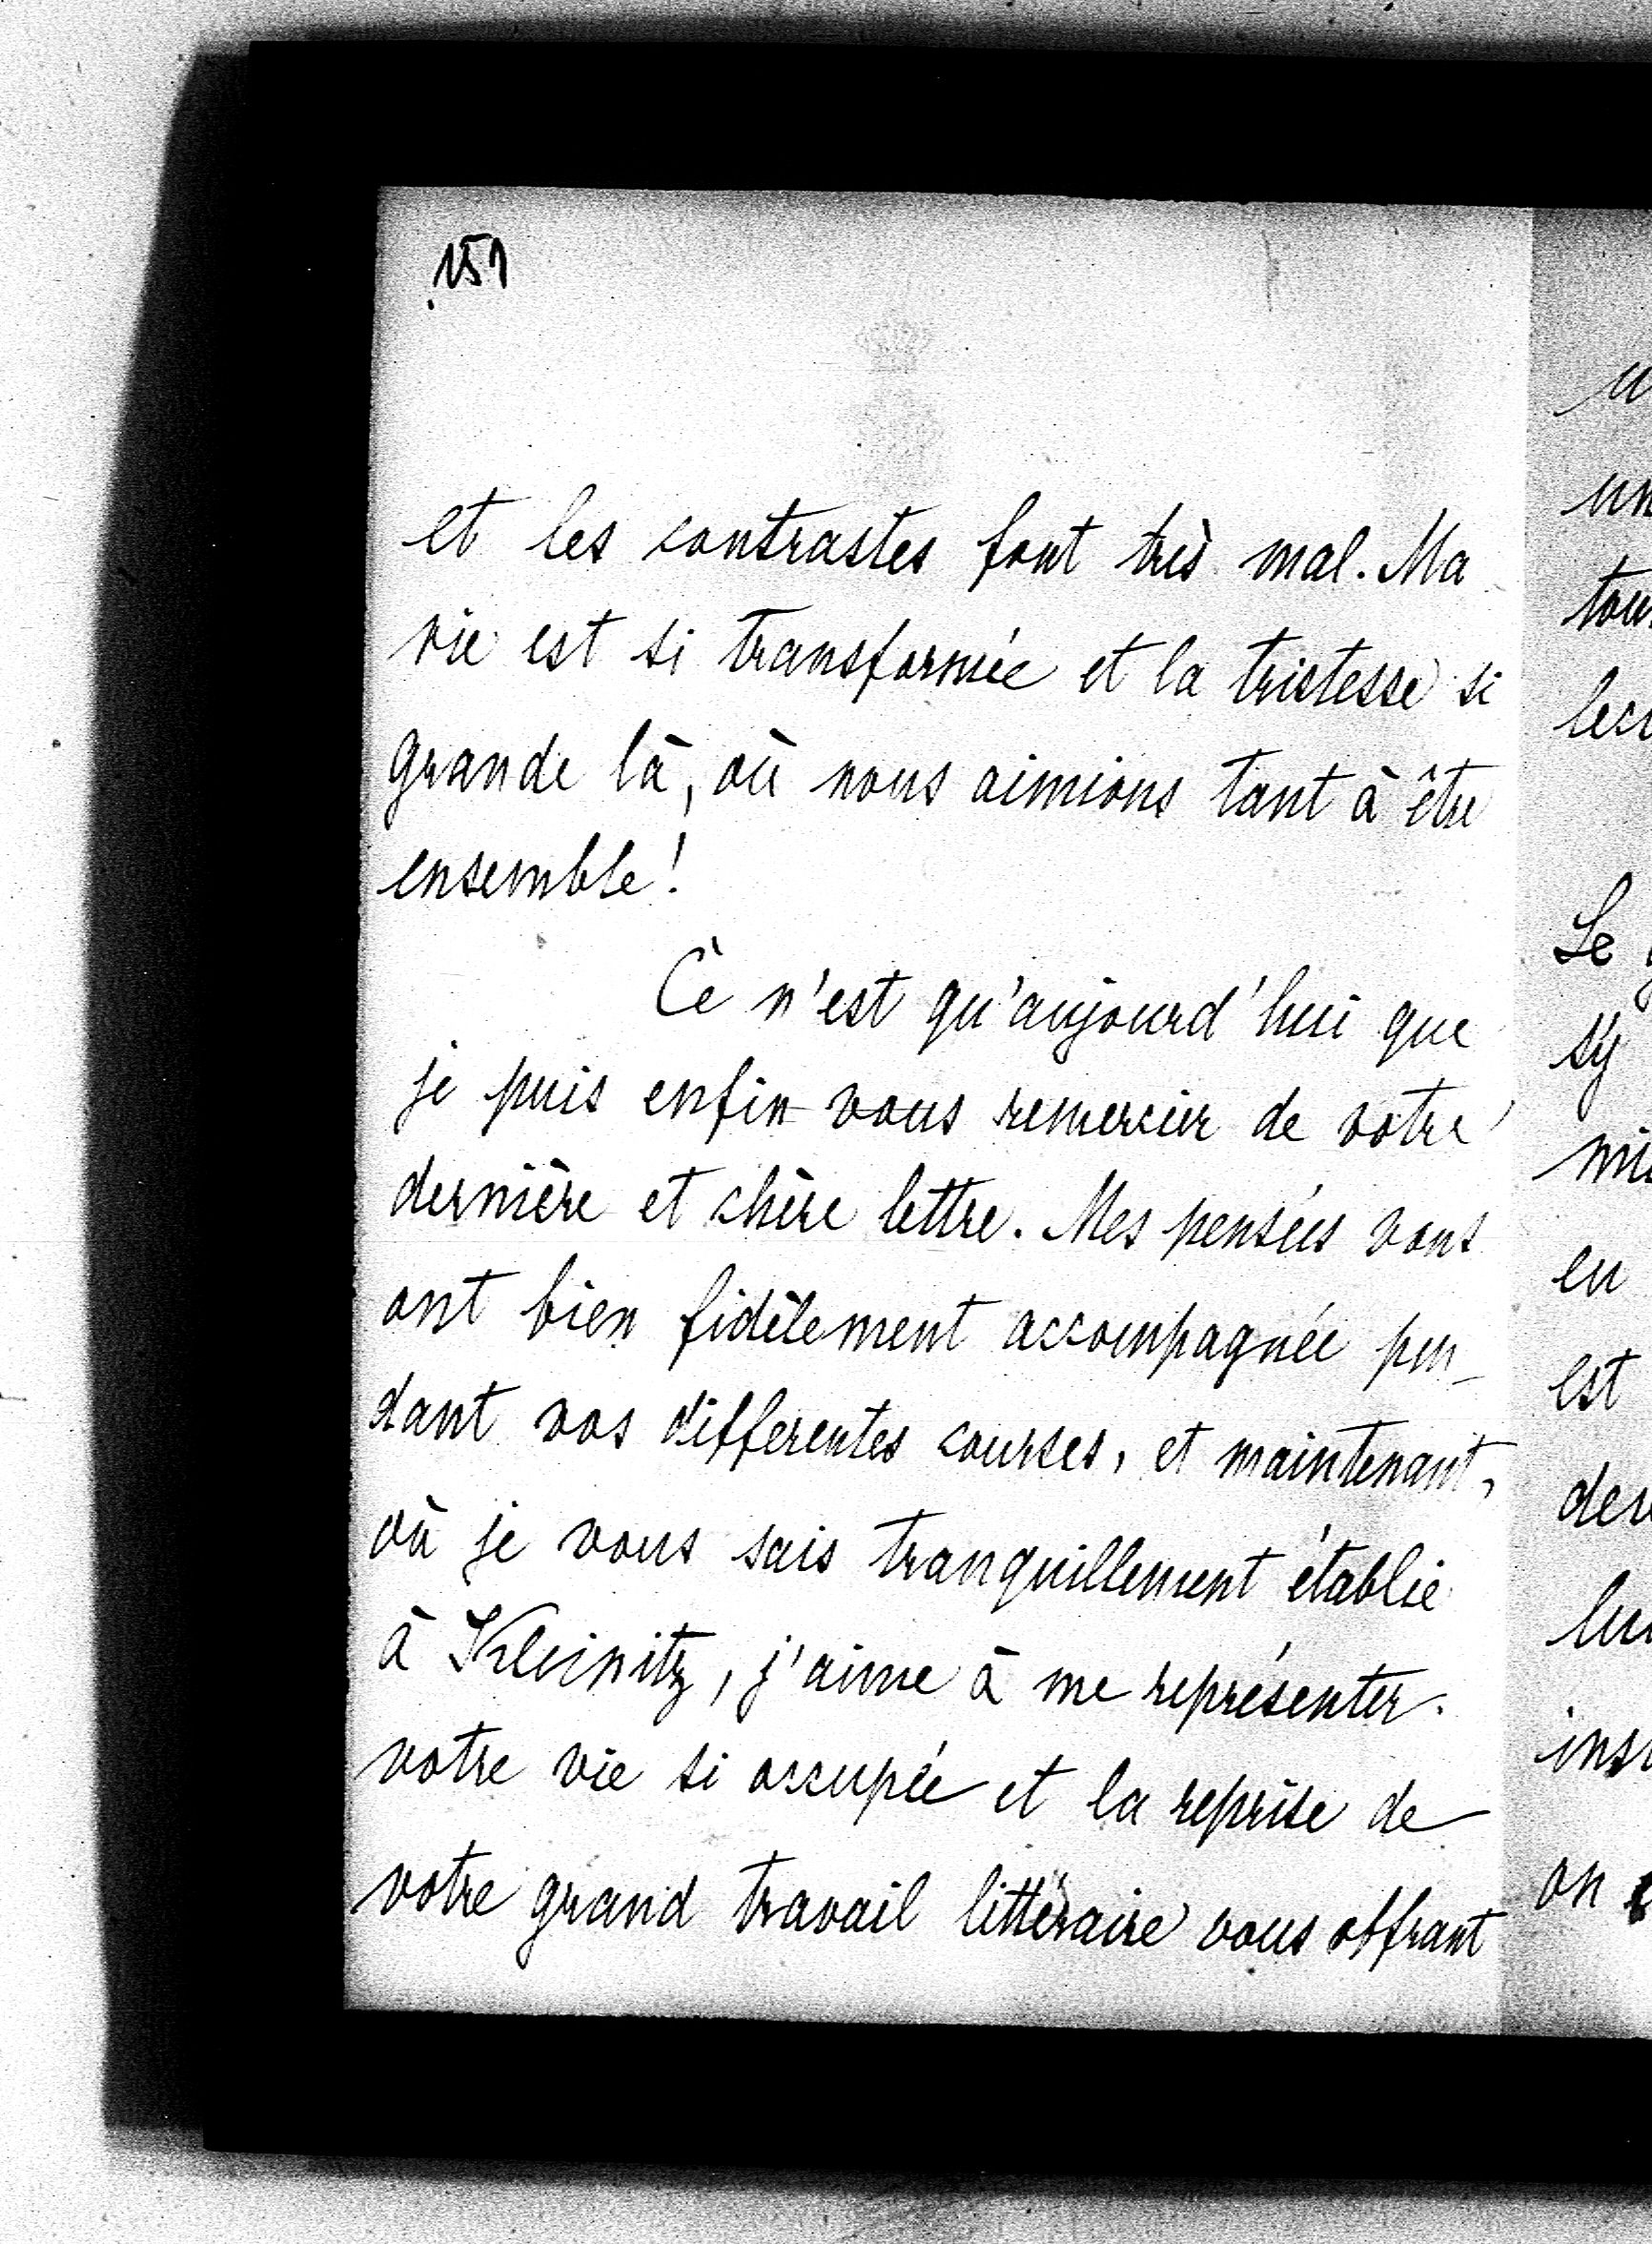 151
et les contrastes font très mal. Ma
vie est si transformée et la tristesse si
grande là, où nous aimions tant à être
ensemble!
Ce n'est qu'aujourd'hui que
je puis enfin vous remercier de votre
dernière et chère lettre. Mes pensées vous
ont bien fidèlement accompagnée pen-
dant vos différentes courses, et maintenant,
où je vous sais tranquillement établie
à Kleinitz, j'aime à me représenter
votre vie si occupée et la reprise de
votre grand travail littéraire vous offrant
un
tou
Le
s'y
en
est
on